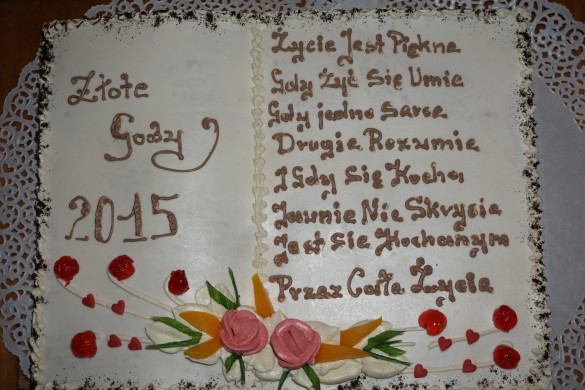 Złote
Gody
2015
Życie Jest Piękne
Gdy Żyć Się Umie
Gdy jedno Serce
Drugie Rozumie
I Gdy Się Kocha
Jawnie Nie Skrycie
Jest się Kochanym
Przez Całe Życie